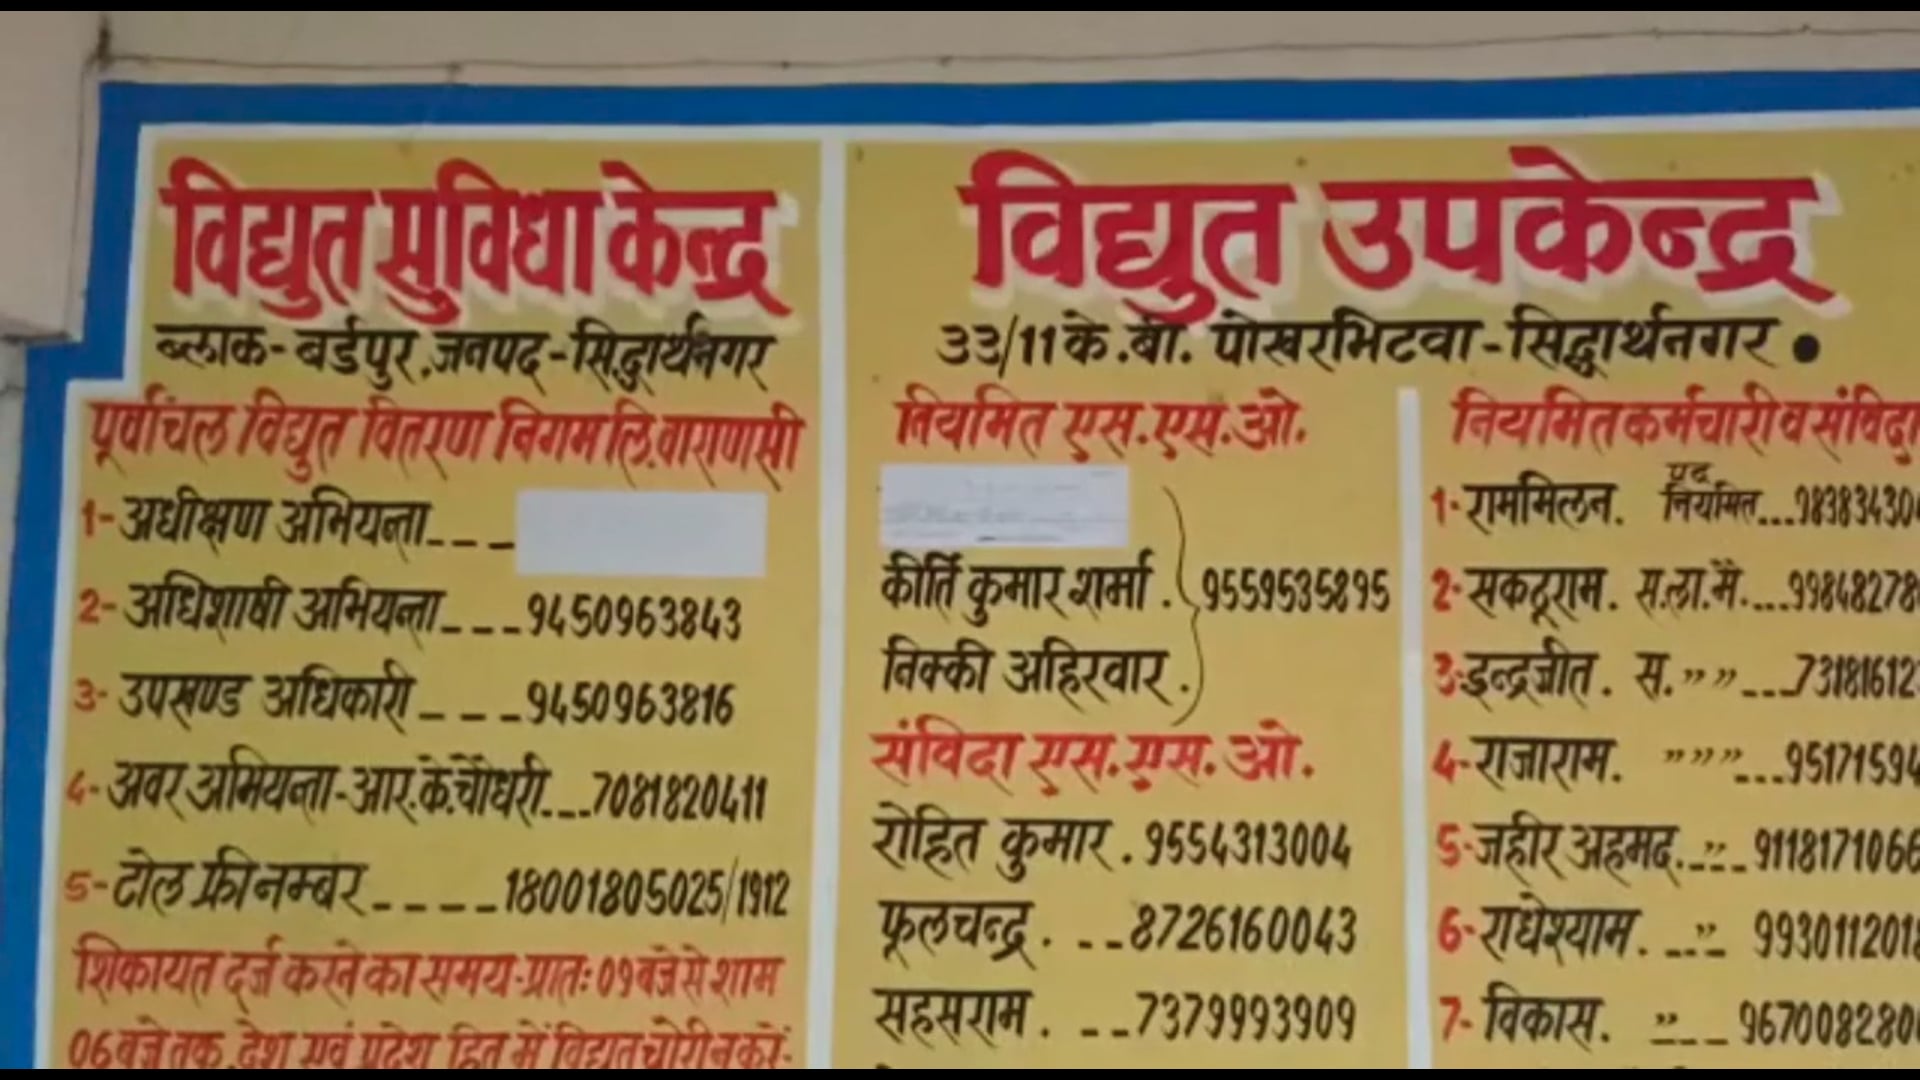 विद्युत सुविधा केन्द्र
ब्लाक-बर्डपुर.जनपद-सिद्धार्थनगर
पूर्वांचल विद्युत वितरण निगम लि.वाराणसी
1- अधीक्षण अभियन्ता_ _ _
2- अधिशाषी अभियन्ता_ _ _9450963843
3- उपखण्ड अधिकारी_ _ _9450963816
4- अवर अभियन्ता-आर.के.चौधरी...7081820411
5- टोल फ्री नम्बर_ _ _ _18001805025/1912
शिकायत दर्ज करने का समय-प्रातः 09 बजे से शाम
06 बजे तक. देश एवं प्रदेश हित में विद्युत चोरी न करें
विद्युत उपकेन्द्र
33/11 के.बी. पोखरभिटवा-सिद्धार्थनगर •
नियमित एस.एस.ओ.
कीर्ति कुमार शर्मा . 9559535895
निक्की अहिरवार .
संविदा एस.एस.ओ.
रोहित कुमार . 9554313004
फूलचन्द्र . _ _8726160043
सहसराम . _ _7379993909
नियमित कर्मचारी व संविदा
पद
1- राममिलन. नियमित...983834304
2- सकटूराम. स.ला.मै....99848278
3- इन्द्रजीत. स. ” ”...7318161​2
4- राजाराम. ” ” ”...95171594
5- जहीर अहमद. ” 9118171066
6- राधेश्याम. ” 993011201
7- विकास. ” 967008280